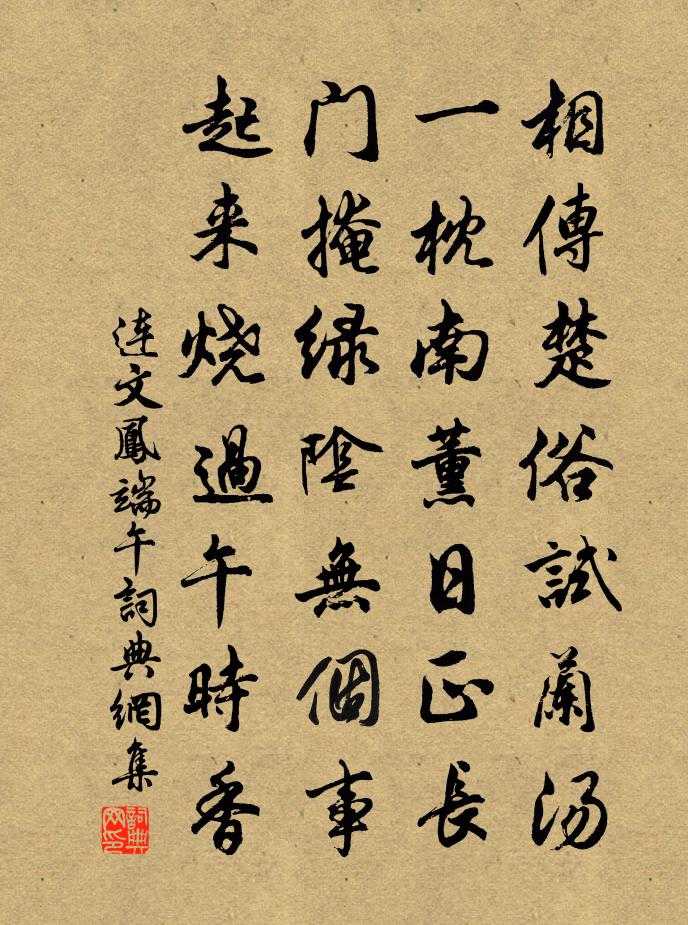 相傳楚俗試蘭湯
一枕南薰日正長
门掩绿陰無個事
起来烧過午時香
連文鳳端午詞典網集
詞典网印